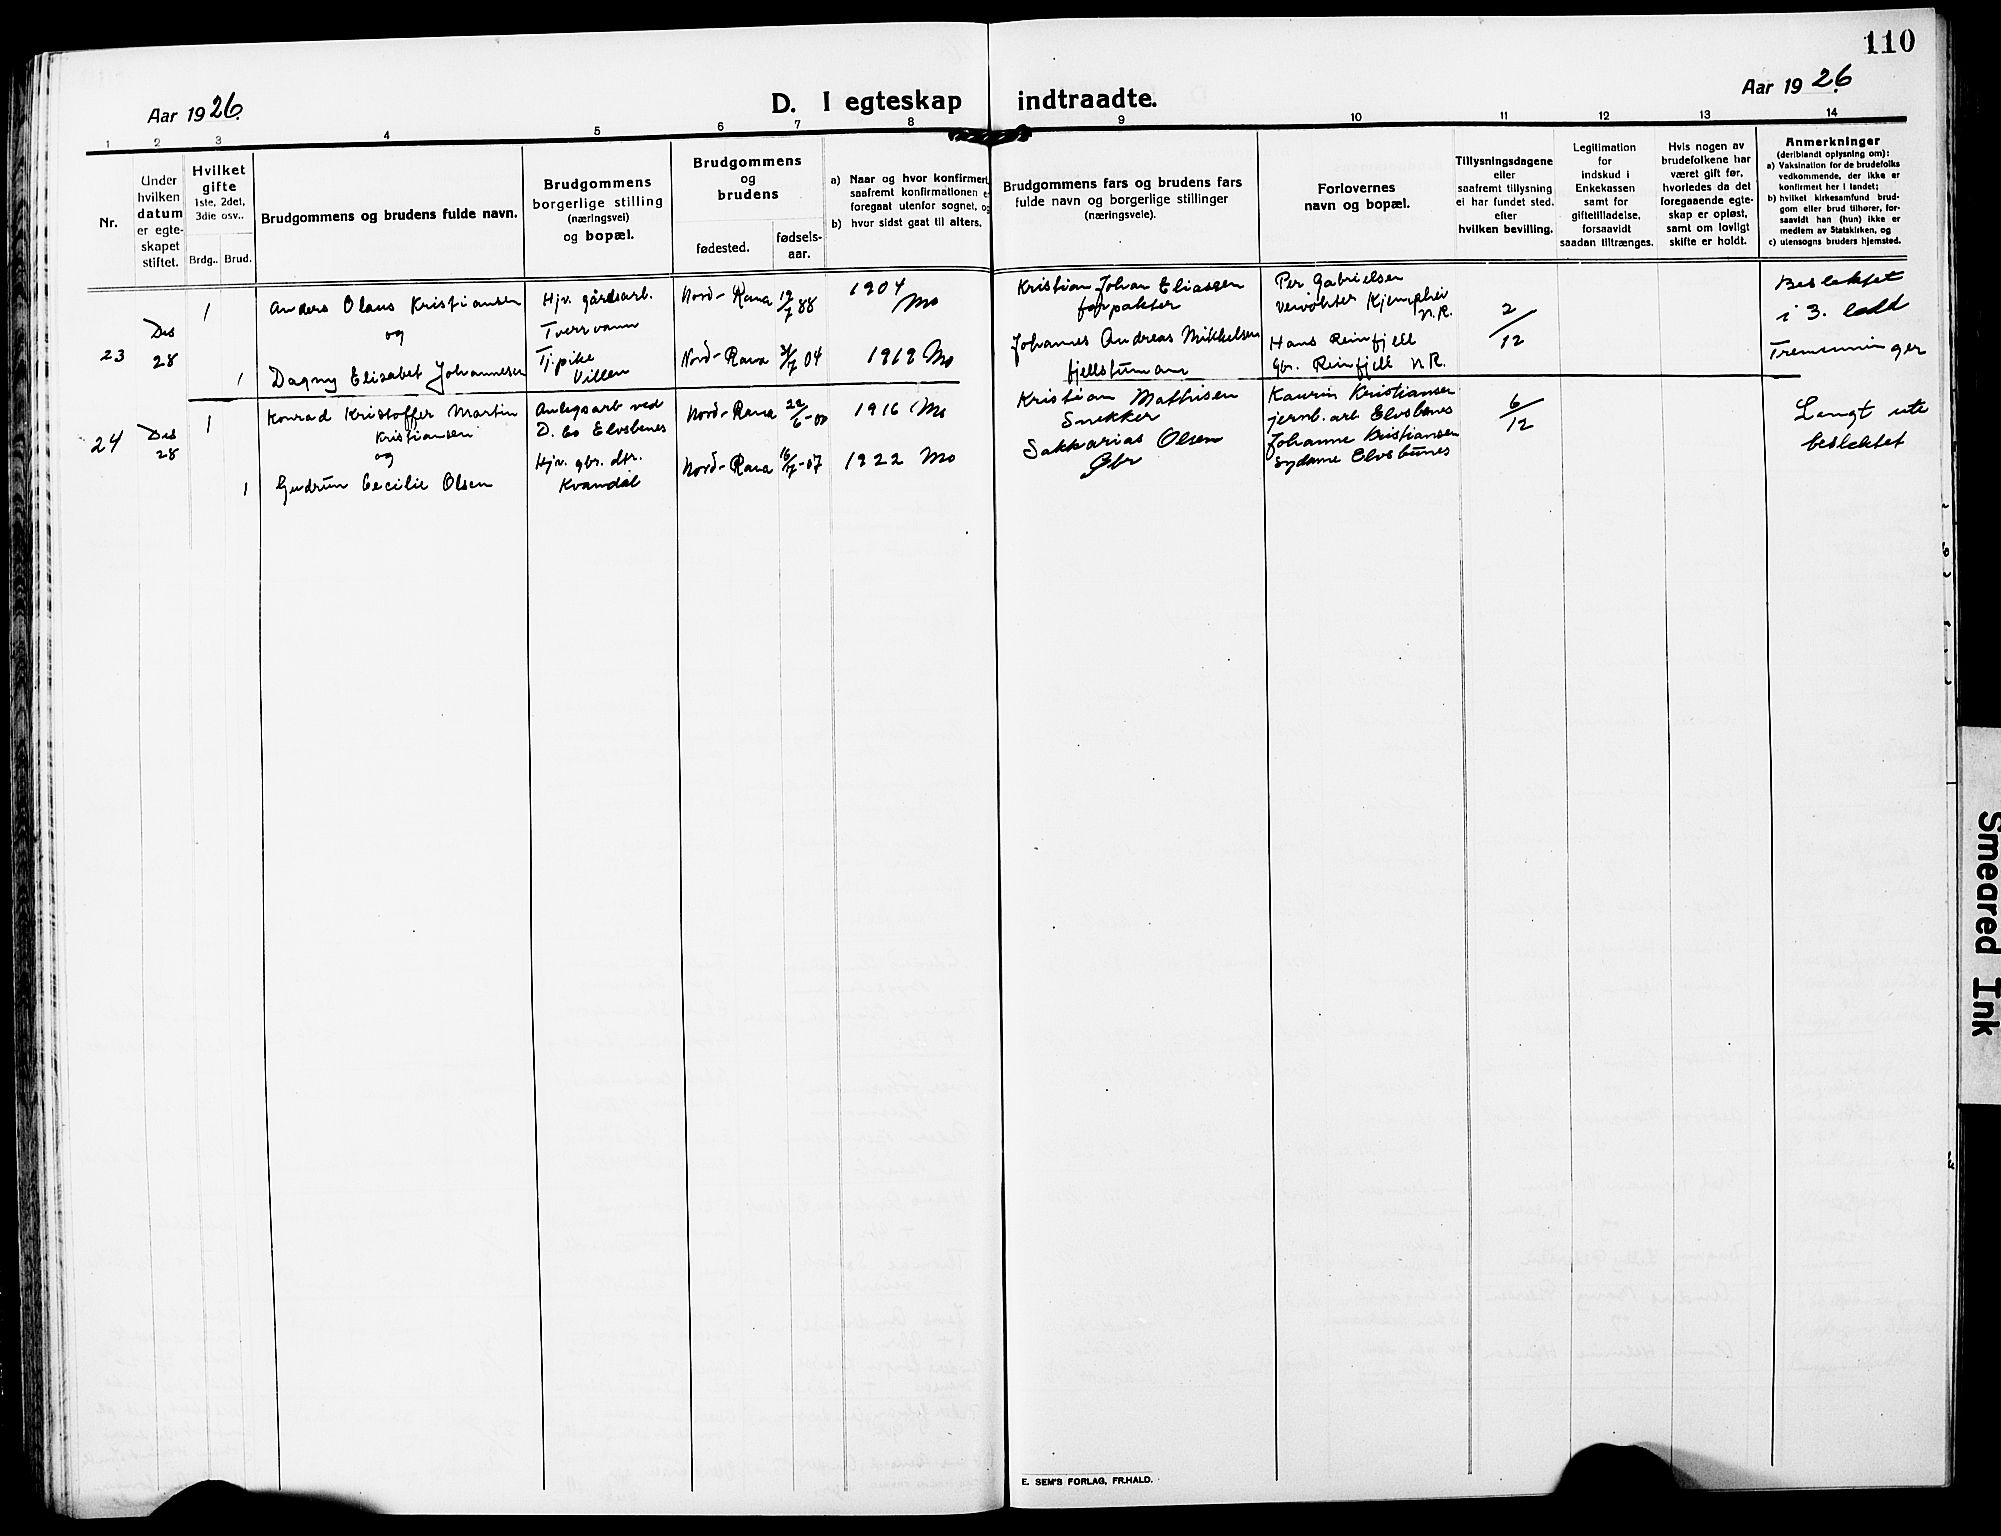 110
Aar 1926
D. I egteskap indtraadte.
Aar 1926
1 2 3 4 5 6 7 8 9 10 11 12 13 14
Nr.
Under
hvilken
datum
er egte-
skapet
stiftet.
Hvilket
gifte
1ste, 2det,
3die osv..
Brdg.. Brud.
Brudgommens og brudens fulde navn.
Brudgommens
borgerlige stilling
(næringsvei)
og bopæl.
Brudgommens
og
brudens
fødested.
fødsels-
aar.
a) Naar og hvor konfirmert,
saafremt konfirmationen e
foregaat utenfor sognet, og
b) hvor sidst gaat til alters.
Brudgommens fars og brudens fars
fulde navn og borgerlige stillinger
(næringsveie).
Forlovernes
navn og bopæl.
Tillysningsdagene
eller
saafremt tillysning
ei har fundet sted.
efter
hvilken bevilling.
Legitimation
for
indskud i
Enkekassen
samt for
giftetilladelse,
forsaavidt
saadan tiltrænges.
Hvis nogen av
brudefolkene har
været gift før,
hvorledes da det
foregaaende egte-
skap er opløst,
samt om lovligt
skifte er holdt.
Anmerkninger
(deriblandt oplysning om):
a) Vaksination for de brudefolks
vedkommende, der ikke er
konfirmert her i landet;
b) hvilket kirkesamfund brud-
gom eller brud tilhører, for-
saavidt han (hun) ikke er
medlem av Statskirken, og
c) utensogns bruders hjemsted.
23
Des
28
1
Anders Olaus Kristiansen
og
1
Dagny Elisabet Johannesen
Hjv. gårdsarb.
Tverrvann
Tj. pike
Villen
Nord-Rana 19/7 88
Nord-Rana 04
1904
Mo
1919 Mo
Kristian Johan Eliassen
forpakter
Johannes Andreas Mikkelsen
fjellstumann
Per Gabrielsen
Veivokter Kjemphei
N.R.
Hans Reinfjell
Gbr. Reinfjell N.R.
2/12
Beslektet
i 3. ledd
Tremenninger
24
Des
28
1
Konrad Kristoffer Martin
Kristiansen
og
1
Gudrun Cecilie Olsen
Anlegsarb ved
D. Co Elvsbenes
Hjv. gbr. dtr.
Kvandal
Nord-Rana 22/6-00
Nord-Rana 16/7-07
1916 Mo
1922 Mo
Kristian Mathisen
Snekker
Sakkarias Olsen
Gbr
Kaurin Kristiansen
jernb. arb Elvsbenes
Johanne Kristiansen
sydame Elvsbenes
6/12
Langt ute
beslektet
E. SEM'S FORLAG, FR.HALD.
Smeared Ink